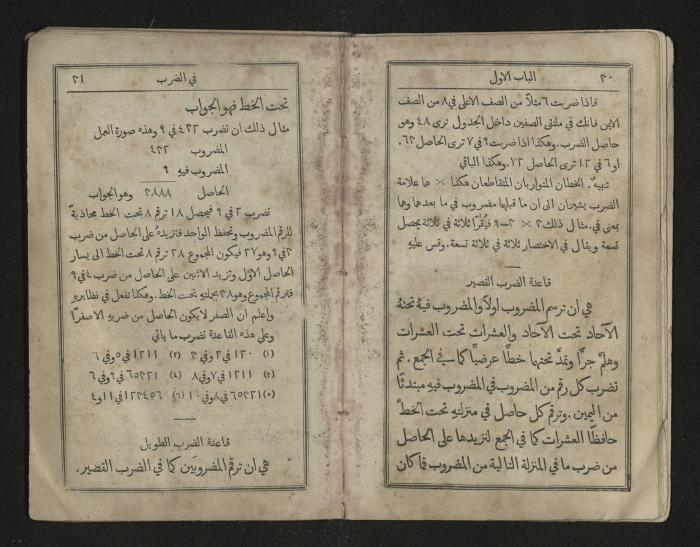 ٢٠ الباب الاول
فاذا ضربت ٦ مثلاً من الصف الاعلى في ٨ من الصف
الايمن فانك في ملتقى الصفين داخل الجدول ترى ٤٨ وهو
حاصل الضرب. وهكذا اذا ضربت ٩ في ٧ ترى الحاصل ٦٣.
او ٦ في ١٢ ترى الحاصل ٧٢. وهكذا الباقي
تنبيه. الخطان المتواربان المتقاطعان هكذا × هما علامة
الضرب يشيران الى ان ما قبلها مضروب في ما بعدها وهما
بمعنى في. مثال ذلك ٣ × ٣ = ٩ فيُقرأ ثلاثة في ثلاثة يحصل
تسعة ويقال في الاختصار ثلاثة في ثلاثة تسعة. وقس عليه
قاعدة الضرب القصير
هي ان ترسم المضروب اولاً والمضروب فيه تحته
الآحاد تحت الآحاد والعشرات تحت العشرات
وهلمَّ جرًّا وتمدَّ تحتها خطًّا عرضيًّا كما في الجمع. ثم
تضرب كل رقم من المضروب في المضروب فيه مبتدئًا
من اليمين. وترقم كل حاصل في منزلته تحت الخط
حافظًا العشرات كما في الجمع لتزيدها على الحاصل
من ضرب ما في المنزلة التالية من المضروب فما كان
في الضرب ٢١
تحت الخط فهو الجواب
مثال ذلك ان تضرب ٤٣٢ في ٩ وهذه صورة العمل
المضروب ٤٣٢
المضروب فيه ٩
الحاصل ٣٨٨٨ وهو الجواب
تضرب ٢ في ٩ فيحصل ١٨ ترقم ٨ تحت الخط محاذيةً
للرقم المضروب وتحفظ الواحد فتزيده على الحاصل من ضرب
٣ في ٩ وهو ٢٧ فيكون المجموع ٢٨ ترقم ٨ تحت الخط الى يسار
الحاصل الاول وتزيد الاثنين على الحاصل من ضرب ٤ في ٩
فارقم المجموع وهو ٣٨ بجملته تحت الخط. وهكذا تفعل في نظايره
واعلم ان الصفر لا يكون الحاصل من ضربه الا صفرًا
وعلى هذه القاعدة تضرب ما ياتي
(١) ١٢٠ في ٢ وفي ٣ (٢) ١٢١١ في ٥ وفي ٦
(٣) ١٢١١ في ٧ وفي ٨ (٤) ٦٥٣٢١ في ٩ وفي ٦
(٥) ٦٥٣٢١ في ٨ وفي ١٠ (٦) ١٢٣٤٥٦ في ١١ و ٤
قاعدة الضرب الطويل
هي ان ترقم المضروبَين كما في الضرب القصير.